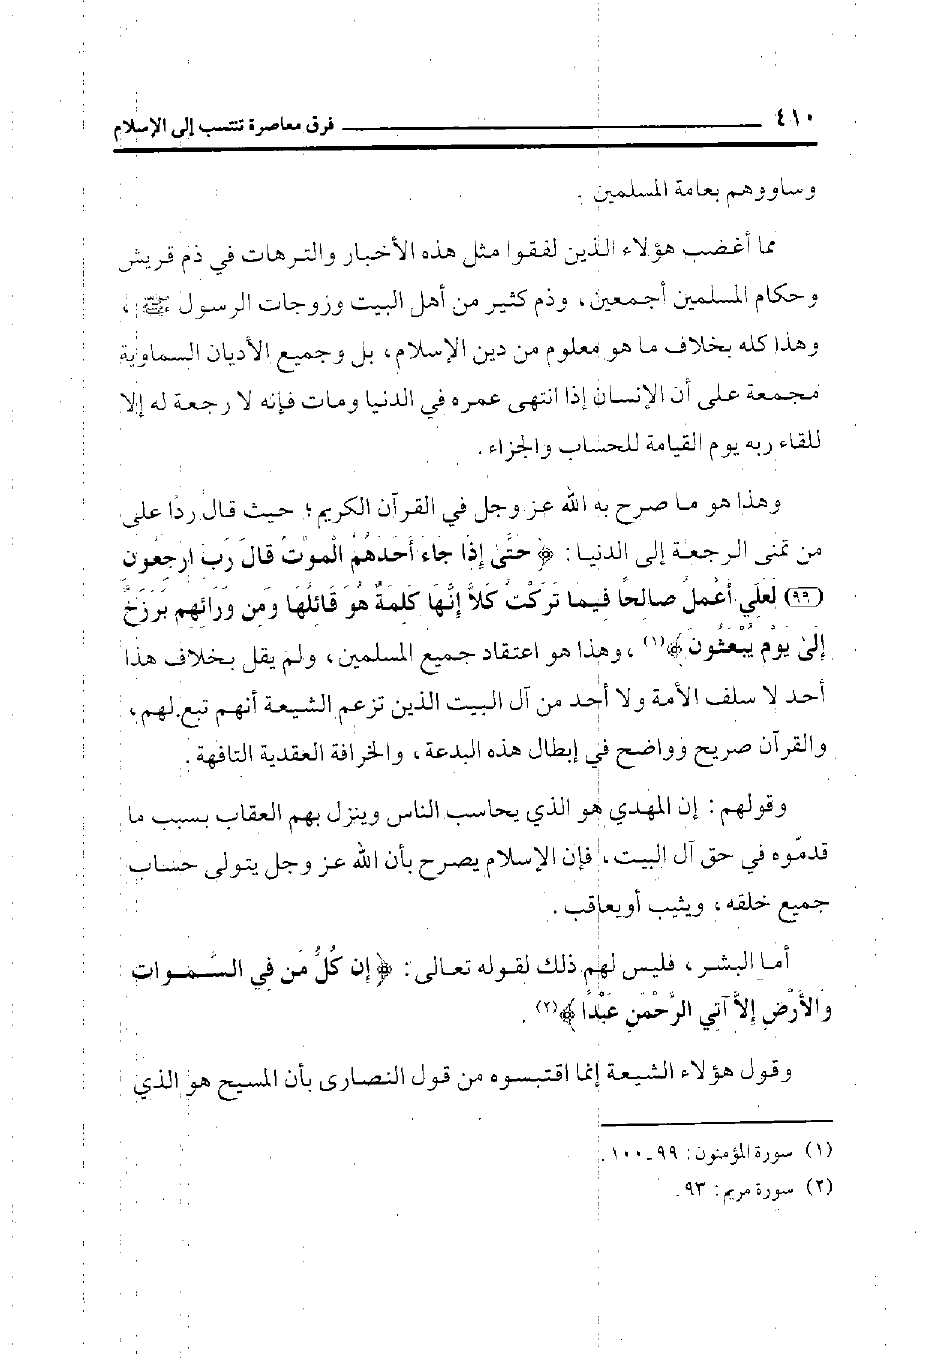 ٤١٠ فرق معاصرة تنتسب إلى الإسلام
وساووهم بعامة المسلمين .
مما أغضب هؤلاء الذين لفقوا مثل هذه الأخبار والترهات في ذم قريش
وحكام المسلمين أجمعين، وذم كثير من أهل البيت وزوجات الرسول ﷺ،
وهذا كله بخلاف ما هو معلوم من دين الإسلام، بل وجميع الأديان السماوية
مجمعة على أن الإنسان إذا انتهى عمره في الدنيا ومات فإنه لا رجعة له إلا
للقاء ربه يوم القيامة للحساب والجزاء .
وهذا هو ما صرح به الله عز وجل في القرآن الكريم؛ حيث قال ردًا على
من تمنى الرجعة إلى الدنيا: ﴿ حَتَّىٰ إِذَا جَاءَ أَحَدَهُمُ الْمَوْتُ قَالَ رَبِّ ارْجِعُونِ
(٩٩) لَعَلِّي أَعْمَلُ صَالِحًا فِيمَا تَرَكْتُ كَلاَّ إِنَّهَا كَلِمَةٌ هُوَ قَائِلُهَا وَمِن وَرَائِهِم بَرْزَخٌ
إِلَىٰ يَوْمِ يُبْعَثُونَ ﴾(١)، وهذا هو اعتقاد جميع المسلمين، ولم يقل بخلاف هذا
أحد لا سلف الأمة ولا أحد من آل البيت الذين تزعم الشيعة أنهم تبع لهم،
والقرآن صريح وواضح في إبطال هذه البدعة، والخرافة العقدية التافهة .
وقولهم: إن المهدي هو الذي يحاسب الناس وينزل بهم العقاب بسبب ما
قدمّوه في حق آل البيت، فإن الإسلام يصرح بأن الله عز وجل يتولى حساب
جميع خلقه، ويثيب أو يعاقب .
أما البشر، فليس لهم ذلك لقوله تعالى: ﴿ إِن كُلُّ مَن فِي السَّمَوَاتِ
وَالأَرْضِ إِلاَّ آتِي الرَّحْمَنِ عَبْدًا ﴾(٢) .
وقول هؤلاء الشيعة إنما اقتبسوه من قول النصارى بأن المسيح هو الذي
(١) سورة المؤمنون: ٩٩ـ١٠٠.
(٢) سورة مريم: ٩٣.